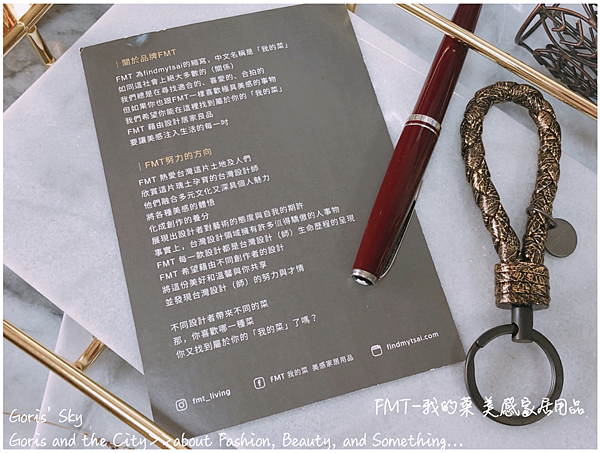 ｜關於品牌FMT
FMT 為findmytsai的縮寫，中文名稱是「我的菜」
如同這社會上絕大多數的（關係）
我們總是在尋找適合的、喜愛的、合拍的
但如果你也跟FMT一樣喜歡極具美感的事物
我們希望你能在這裡找到屬於你的「我的菜」
FMT 藉由設計居家良品
要讓美感注入生活的每一吋
｜FMT努力的方向
FMT 熱愛台灣這片土地及人們
欣賞這片瑰土孕育的台灣設計師
他們融合多元文化又深具個人魅力
將各種美感的體悟
化成創作的養分
展現出設計者對藝術的態度與自我的期許
事實上，台灣設計領域擁有許多值得驕傲的人事物
FMT 每一款設計都是台灣設計（師）生命歷程的呈現
FMT 希望藉由不同創作者的設計
將這份美好和溫馨與你共享
並發現台灣設計（師）的努力與才情
不同設計者帶來不同的菜
那，你喜歡哪一種菜
你又找到屬於你的「我的菜」了嗎？
fmt_living
FMT 我的菜 美感家居用品
findmytsai.com
FMT-我的菜 美感家居用品
Goris' Sky
Goris and the City>>about Fashion, Beauty, and Something...